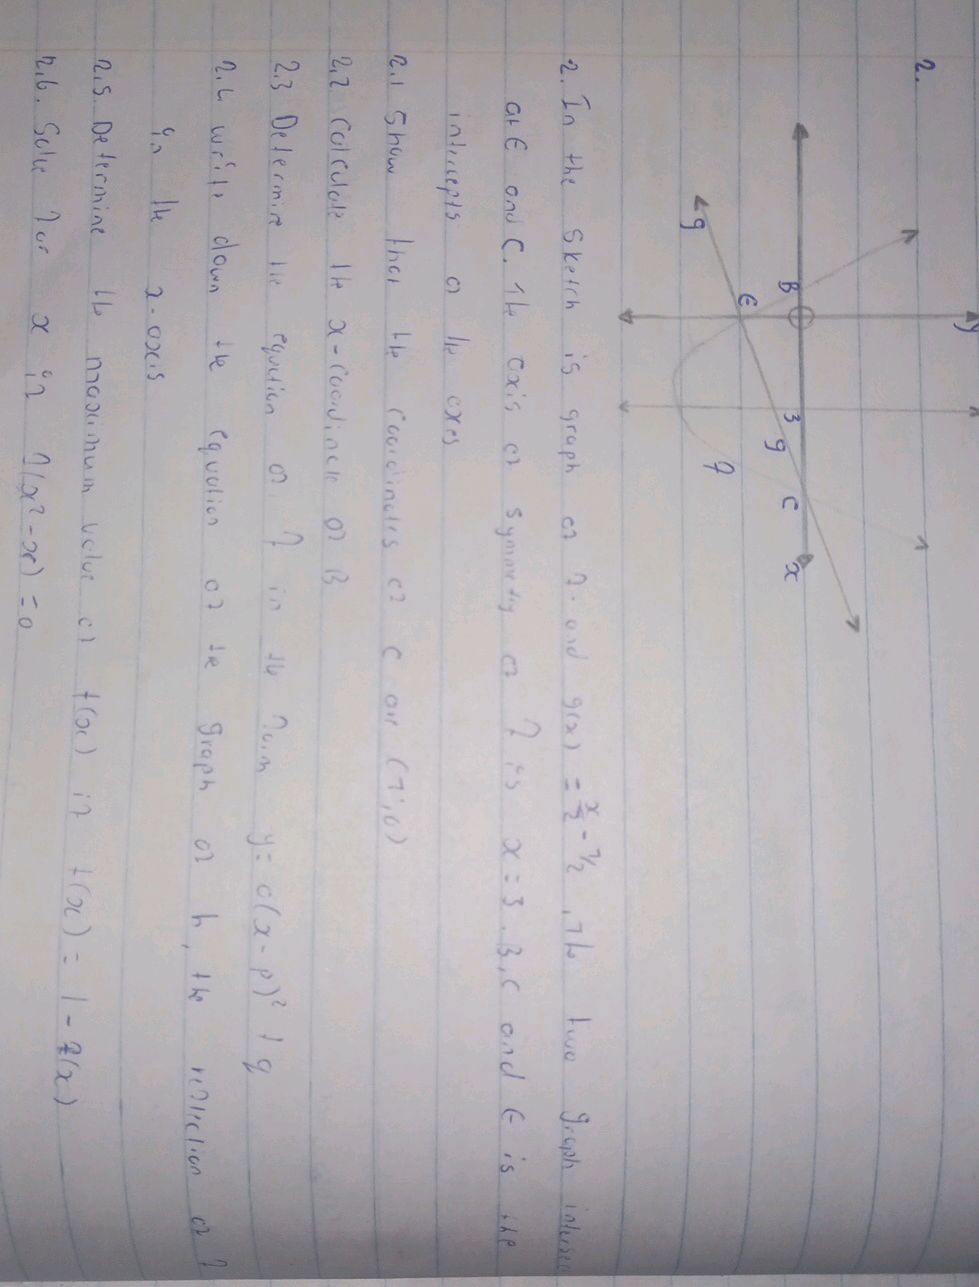 2.
y
B
O
3
g
C
x
E
g
f
2. In the sketch is graph of f and g(x) = x/2 - 7/2, the two graph
at E and C. The axis of symmetry of f is x = 3. B, C and E is the
intercepts of the axes
2.1 Show that the coordinates of C are (7;0)
2.2 calculate the x-coordinate of B
2.3 Determine the equation of f in the form y = a(x - p)² + q
2.4 write down the equation of the graph of h, the reflection of f
in the x-axis
2.5. Determine the maximum value of t(x) if t(x) = 1 - f(x)
2.6. Solve for x in f(x² - x) = 0